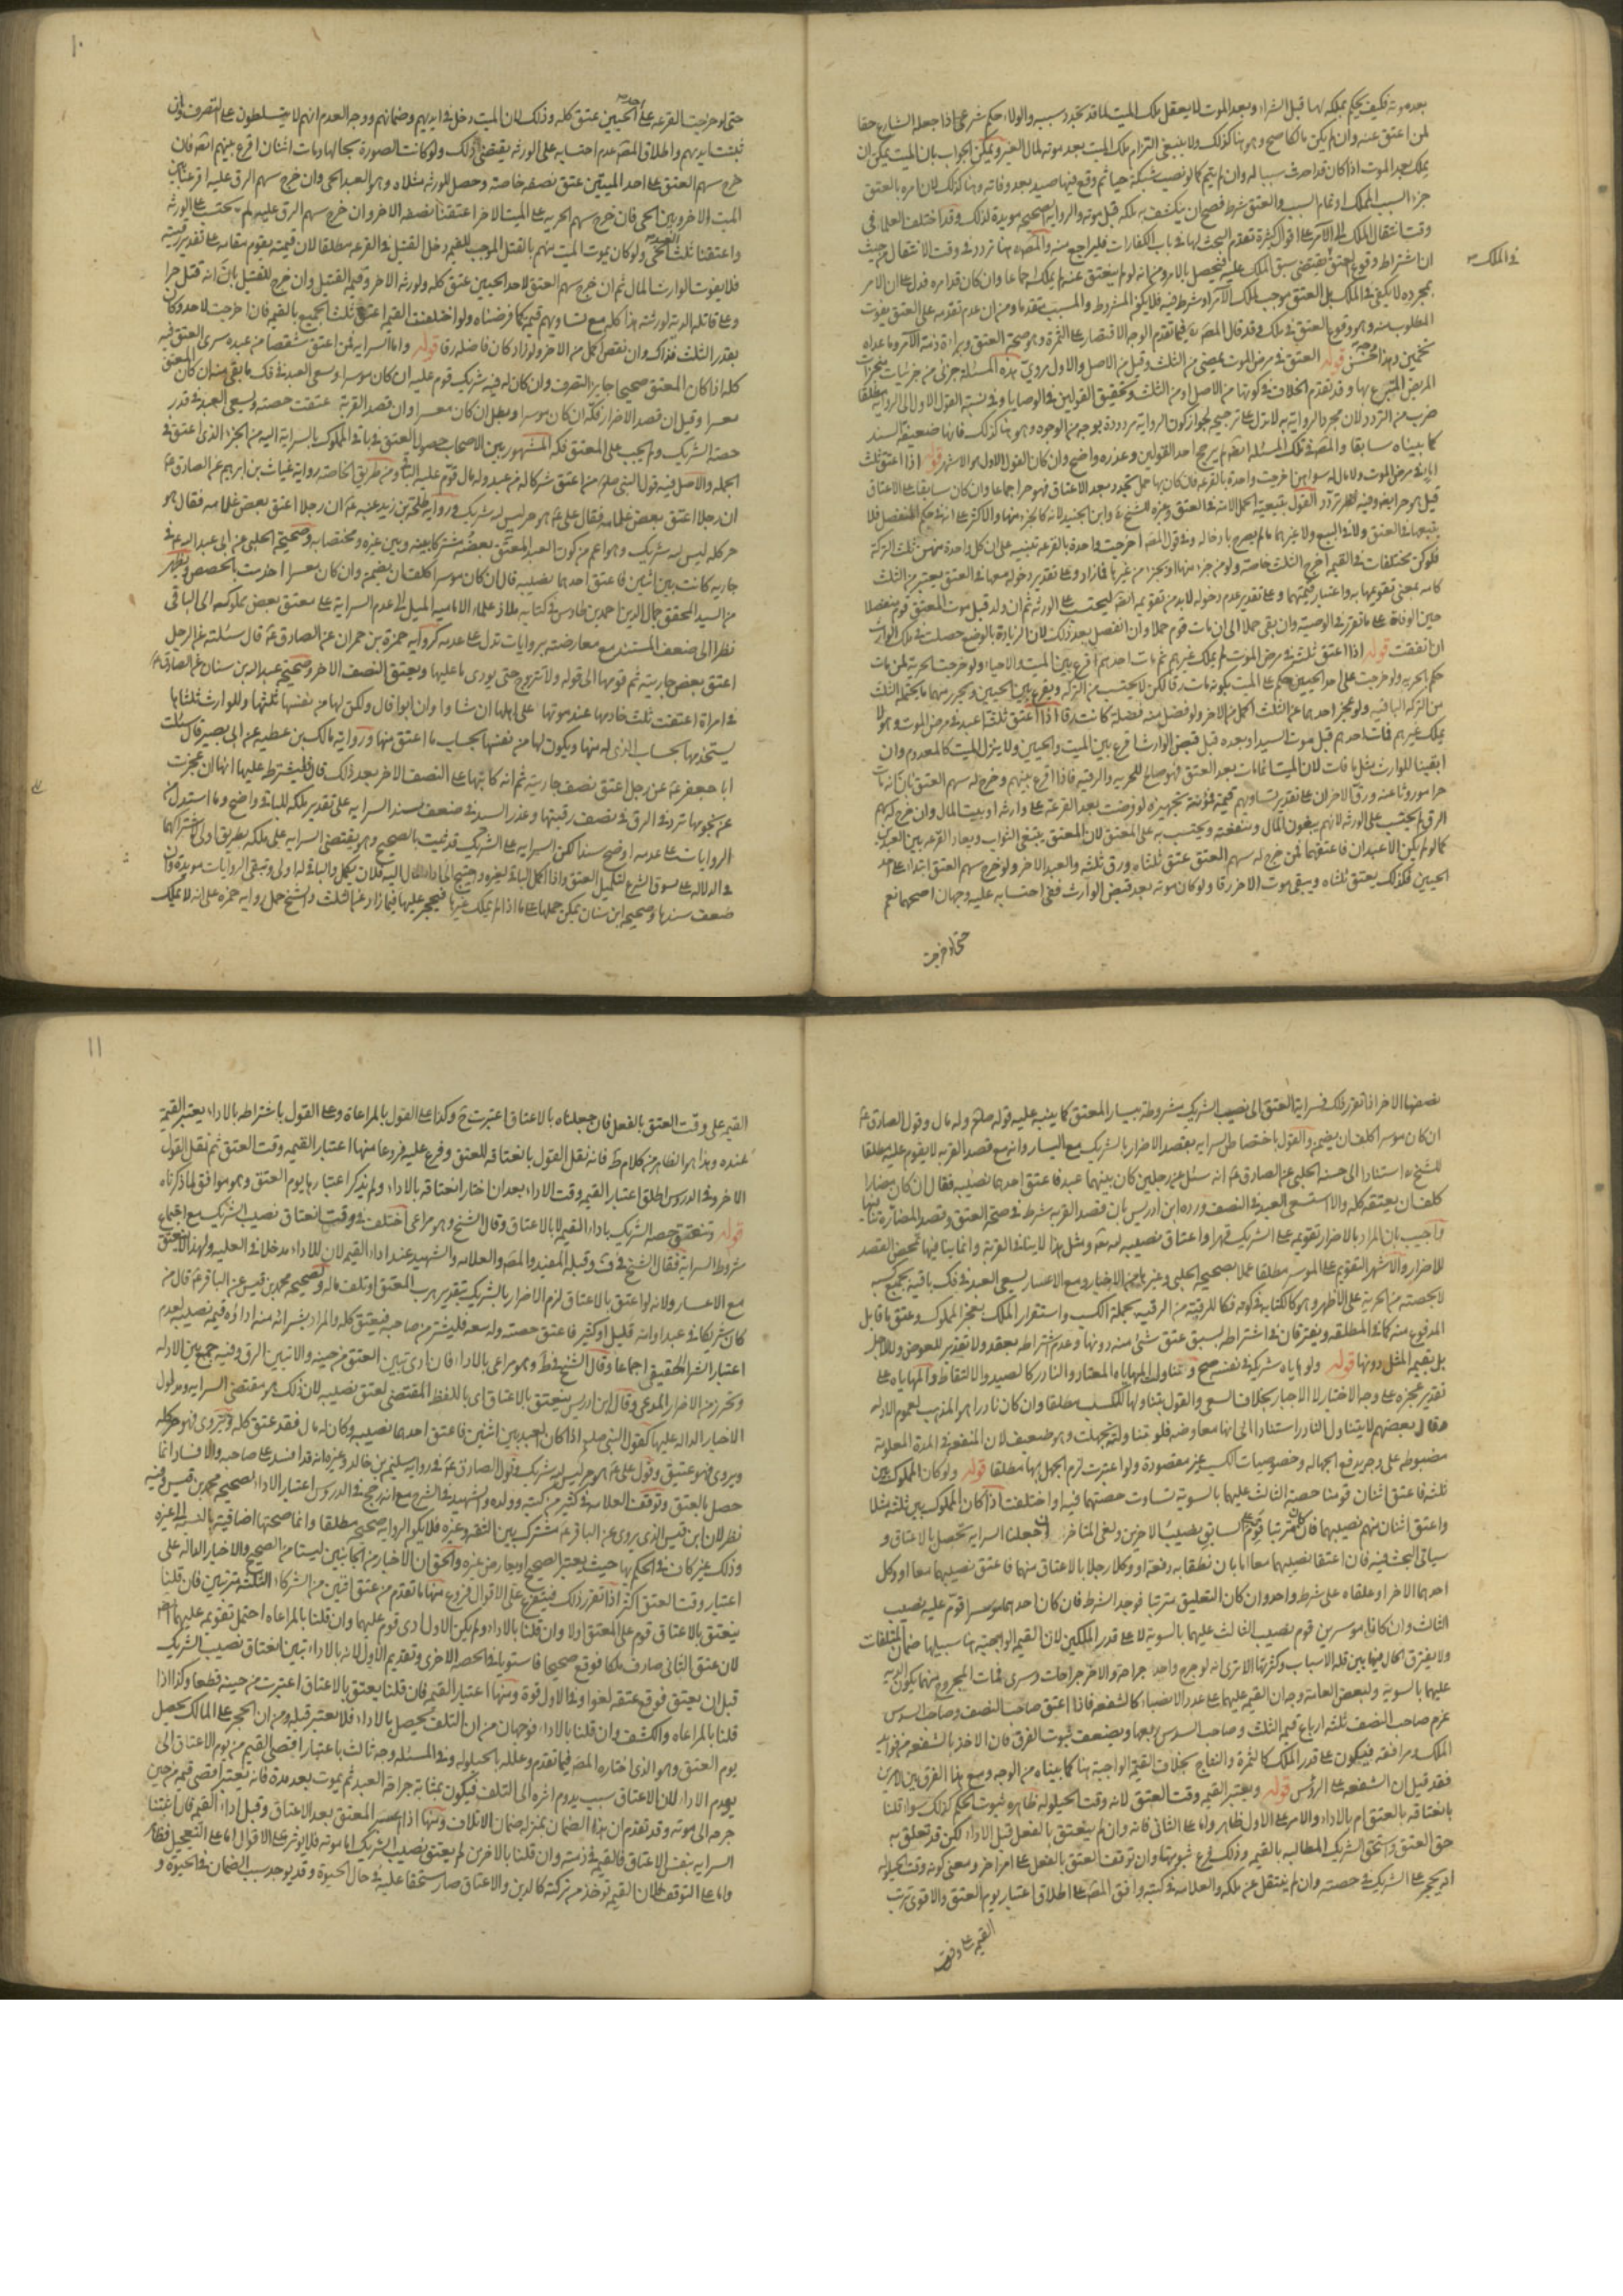 بعد موته فكيف يحكم بملكه لها قبل الشراء وبعد الموت لا يعقل ملك الميت لما قد تجدد سببه والولاء حكم شرعي اذا جعله الشارع حقا
لمن اعتق عنه وان لم يكن مالكا صح وهو هنا كذلك ولا ينبغي التزام ملك الميت بعد موته لمال الغير ويمكن الجواب بان الميت يمكن ان
يملك بعد الموت اذا كان قد احدث سببا له وان لم يتم كما لو نصب شبكة حيا ثم وقع فيها صيد بعد وفاته وهنا كذلك لان امره بالعتق
جزء السبب المملك او تمام السبب والعتق شرط فصح ان ينكشف به ملكه قبل موته والرواية الصحيحة مويدة لذلك وقد اختلف العلماء في
وقت انتقال الملك الى الآمر على اقوال كثيرة تقدم البحث لها في باب الكفارات فليراجع منه والمصه هنا تردد في وقت الانتقال من حيث
في الملك
ان اشتراط وقوع العتق يقتضي سبق الملك عليه فيحصل بالامر ومن انه لو لم ينعتق عنه لم يملك اجماعا وان كان قد امره فدل على ان الامر
بمجرده لا يكفي في الملك بل العتق موجب لملك الآمر او شرط فيه فلا يكون المشروط والمسبب متقدما ومن ان عدم تقدمه على العتق يفوت
المطلوب منه وهو وقوع العتق في ملك وقد قال المصه فيما تقدم الوجه الاقتصار على الثمرة وهو صحة العتق وبراءة ذمة الآمر وما عداه
تخمين وهذا حسن قوله العتق في مرض الموت يمضي من الثلث وقيل من الاصل والاول مروي هذه المسئلة جزئي من جزئيات منجزات
المريض المتبرع بها وقد تقدم الخلاف في كونها من الاصل او من الثلث وتحقيق القولين في الوصايا وفي نسبة القول الاول الى الرواية مطلقا
ضرب من التردد لان مجرد الرواية به لا تدل على ترجيحه لجواز كون الرواية مردودة بوجه من الوجوه وهو هنا كذلك فانها ضعيفة السند
كما بيناه سابقا والمصه في تلك المسئلة ايضا لم يرجح احد القولين وعذره واضح وان كان القول الاول هو الاشهر قوله اذا اعتق ثلث
اماء في مرض الموت ولا مال له سواهن اخرجت واحدة بالقرعة فان كان بها حمل تجدد بعد الاعتاق فهو حر اجماعا وان كان سابقا على الاعتاق
قيل هو حر ايضا وفيه تردد القول بتبعية الحمل لامه في العتق وغيره للشيخ وابن الجنيد لانه كالجزء منها والاكثر على انه في حكم المنفصل فلا
يتبعها في العتق ولا في البيع ولا غيرهما ما لم يصرح بادخاله وفي قول المصه اخرجت واحدة بالقرعة تنبيه على ان كل واحدة منهن ثلث التركة
فلو كن مختلفات في القيمة اخرج الثلث خاصة ولو من جزء منها او بجزء من غيرها فما زاد وعلى تقدير دخوله معها في العتق يعتبر من الثلث
كامه بمعنى تقويمها به واعتبار قيمتهما وعلى تقدير عدم دخوله لابد من تقويمه ايضا ليحتسب على الورثة ثم ان ولد قبل موت المعتق قوم منفصلا
حين الوفاة على ما تقرر في الوصية وان بقي حملا الى ان مات قوم حملا وان انفصل بعد ذلك لان الزيادة بالوضع حصلت في ملك الوارث
ان اتفقت قوله اذا اعتق ثلثة في مرض الموت لم يملك غيرهم ثم مات احدهم اقرع بين الميت والاحياء ولو خرجت الحرية لمن مات
حكم الحرية ولو خرجت على احد الحيين حكم على الميت بكونه مات رقا لكن لا يحتسب من التركة ويقرع بين الحيين ويحرر منهما ما يحتمله الثلث
من التركة الباقية ولو عجز احدهما عن الثلث اكمل من الاخر ولو فضل منه فضلة كانت رقا اذا اعتق ثلثة اعبد في مرض الموت وهو لا
يملك غيرهم فمات احدهم قبل موت السيد او بعده قبل قبض الوارث اقرع بين الميت والحيين ولا ينزل الميت كالمعدوم وان
ابقينا للوارث مثلي ما فات لان الميت انما مات بعد العتق فهو صالح للحرية والرقية فاذا اقرع بينهم وخرج له سهم العتق بان انه مات
حرا موروثا عنه ورق الاخران على تقدير تساويهم قيمة فمؤنة تجهيزه لو فرضت بعد القرعة على وارثه او بيت المال وان خرج له سهم
الرق لم يحتسب على الورثة لانهم يبغون المال ومنفعته ويحتسب به على المعتق لان المعتق يبتغي الثواب ويعاد القرعة بين العبدين
كما لو لم يكن الا عبدان فاعتقهما فمن خرج له سهم العتق عتق ثلثاه ورق ثلثه والعبد الاخر ولو خرج سهم العتق ابتداء على احد
الحيين فكذلك يعتق ثلثاه ويبقى موت الاخر رقا ولو كان موته بعد قبض الوارث ففي احتسابه عليه وجهان اصحهما نعم
حتى لو خرجت
١٠
حتى لو خرجت القرعة على احد الحيين عتق كله وذلك لان الميت دخل في ايديهم وضمانهم ووجه العدم انهم لا يتسلطون على التصرف وان
ثبتت ايديهم واطلاق المصه عدم احتسابه على الورثة يقتضي ذلك ولو كانت الصورة بحالها ومات اثنان اقرع بينهم ايضا فان
خرج سهم العتق على احد الميتين عتق نصفه خاصة وحصل للورثة مثلاه وهو العبد الحي وان خرج سهم الرق عليه اقرعنا بين
الميت الاخر وبين الحي فان خرج سهم الحرية على الميت الاخر اعتقنا نصفه الاخر وان خرج سهم الرق عليه لم يحتسب على الورثة
واعتقنا ثلثي العبد الحي ولو كان موت الميت منهم بالقتل الموجب للقيمة دخل القتيل في القرعة مطلقا لان قيمته يقوم مقامه على تقدير رقيته
فلا يفوت الوارث المال ثم ان خرج سهم العتق لاحد الحيين عتق كله ولورثته الاخر وقيمة القتيل وان خرج للقتيل بان انه قتل حرا
وعلى قاتله الدية لورثته هذا كله مع تساويهم قيمة كما فرضناه ولو اختلفت القيم اعتق ثلث الجميع بالقيمة فان اخرجت لاحد وكان
بقدر الثلث فذاك وان نقص اكمل من الاخر ولو زاد كان فاضله رقا قوله واما السراية فمن اعتق شقصا من عبده سرى العتق فيه
كله اذا كان المعتق صحيحا جايز التصرف وان كان له فيه شريك قوم عليه ان كان موسرا وسعى العبد في فك ما بقي منه ان كان المعتق
معسرا وقيل ان قصد الاضرار فكه ان كان موسرا وبطل ان كان معسرا وان قصد القربة عتقت حصته وسعى العبد في قدر
حصة الشريك ولم يجب على المعتق فكه المشهور بين الاصحاب حصول العتق في باقي المملوك بالسراية اليه من الجزء الذي اعتق في
الجملة والاصل فيه قول النبي صلعم من اعتق شركا له من عبد وله مال قوم عليه الباقي ومن طريق الخاصة رواية غياث بن ابراهيم عن الصادق ع
ان رجلا اعتق بعض غلامه فقال علي ع هو حر ليس لله شريك وفي رواية طلحة بن زيد عنه ع ان رجلا اعتق بعض غلامه فقال هو
حر كله ليس لله شريك وهو اعم من كون العبد المعتق بعضه مشتركا بينه وبين غيره ومختصا به وصحيحة الحلبي عن ابي عبد الله ع في
جارية كانت بين اثنين فاعتق احدهما نصيبه قال ان كان موسرا كلف ان يضمن وان كان معسرا اخدمت بالحصص ويظهر
من السيد المحقق جمال الدين احمد بن طاوس في كتابه ملاذ علماء الامامية الميل الى عدم السراية على معتق بعض مملوكه الى الباقي
نظرا الى ضعف المستند مع معارضته بروايات تدل على عدمه كرواية حمزة بن حمران عن الصادق ع قال سئلته عن الرجل
اعتق بعض جاريته ثم قومها الى قوله ولا تتزوج حتى يودى ما عليها ويعتق النصف الاخر وصحيحة عبد الله بن سنان عن الصادق ع
في امرأة اعتقت ثلث خادمها عند موتها على اهلها ان شاوا وان ابوا قال ولكن لها من نفسها ثلثها وللوارث ثلثاها
يستخدمها بحساب الذي له منها ويكون لها من نفسها بحساب ما اعتق منها ورواية مالك بن عطية عن ابي بصير قال سئلت
ابا جعفر ع عن رجل اعتق نصف جاريته ثم انه كاتبها على النصف الاخر بعد ذلك قال فليشترط عليها انها ان عجزت
عن نجومها ترد في الرق في نصف رقبتها وعذر السيد في ضعف سند السراية على تقدير ملكه للباقي واضح وما استدل به من
الروايات على عدمه اوضح سندا لكن السراية على الشريك قد ثبتت بالصحيح وهو يقتضي السراية على ملكه بطريق اولى لاشتراكهما
في الدلالة على سوق الشرع لتكميل العتق واذا اكمل الباقي لغيره ويحتاج الى اداء المال اليه فلان يكمل والباقي له اولى وتبقى الروايات مويدة وان
ضعف سندها وصحيحة ابن سنان يمكن حملها على ما اذا لم يملك غيرها فيحجر عليها فيما زاد عن الثلث والشيخ حمل رواية حمزة على انه لا يملك
نصفها الاخر اذا تقرر ذلك فسراية العتق الى نصيب الشريك مشروطة بيسار المعتق كما ينبه عليه قوله صلعم وله مال وقول الصادق ع
ان كان موسرا كلف ان يضمن والقول باختصاص السراية بقصد الاضرار بالشريك مع اليسار وانه مع قصد القربة لا يقوم عليه مطلقا
للشيخ استنادا الى حسنة الحلبي عن الصادق ع انه سئل عن رجلين كان بينهما عبد فاعتق احدهما نصيبه فقال ان كان مضارا
كلف ان يعتقه كله والا استسعى العبد في النصف ورده ابن ادريس بان قصد القربة شرط في صحة العتق وقصد المضارة ينافيها
واجيب بان المراد بالاضرار تقويمه على الشريك قهرا واعتاق نصيبه لله تعه ومثل هذا لا ينافي القربة وانما ينافيها تمحض القصد
للاضرار والاشهر التقويم على الموسر مطلقا عملا بصحيحة الحلبي وغيرها من الاخبار ومع الاعسار يسعى العبد في فك باقيه بجميع كسبه
لا بحصته من الحرية على الاظهر وهو كالكتابة في كونه فكا للرقبة من الرقية بجملة الكسب واستقرار الملك بعجز المملوك وعتق ما قابل
المدفوع منه كما في المطلقة ويفترقان في اشتراطه بسبق عتق شيء منه دونها وعدم اشتراطه بعقد ولا تقدير للعوض وللاجل
بل بقيمة المثل دونها قوله ولو هاياه شريكه في نفسه صح وتناول المهاياه المعتاد والنادر كالصيد والالتقاط والمهاياه على
تقدير عجزه على وجه الاختيار لا الاجبار بخلاف السعي والقول بتناولها للكسب مطلقا وان كان نادرا هو المذهب لعموم الادلة
وقال بعضهم لا يتناول النادر استنادا الى انها معاوضة فلو تناولته تجهلت وهو ضعيف لان المنفعة في المدة المعلومة
مضبوطة على وجه يدفع الجهالة وخصوصيات الكسب غير مقصودة ولو اعتبرت لزم الجهل بها مطلقا قوله ولو كان المملوك بين
ثلثة فاعتق اثنان قومنا حصة الثالث عليهما بالسوية تساوت حصتهما فيه او اختلفت اذا كان المملوك بين ثلثة مثلا
واعتق اثنان منهم نصيبهما فان كان مترتبا قوم على السابق نصيب الاخرين ولغى المتاخر ان جعلنا السراية تحصل بالاعتاق و
سياتي البحث فيه فان اعتقا نصيبهما معا اما بان نطقا به دفعة او وكلا رجلا بالاعتاق منهما فاعتق نصيبهما معا او وكل
احدهما الاخر او علقاه على شرط واحد وان كان التعليق مترتبا فوجد الشرط فان كان احدهما موسرا قوم عليه نصيب
الثالث وان كانا موسرين قوم نصيب الثالث عليهما بالسوية لا على قدر الملكين لان القيمة الواجبة هنا سبيلها ضمان المتلفات
ولا يفترق الحال فيها بين قلة الاسباب وكثرتها الا ترى انه لو جرح واحد جراحة والاخر جراحات وسرى فمات المجروح منهما يكون الدية
عليهما بالسوية ولبعض العامة وجه ان القيمة عليهما على قدر الانصباء كالشفعة فاذا اعتق صاحب النصف وصاحب السدس
غرم صاحب النصف ثلثة ارباع قيمة الثلث وصاحب السدس ربعها ويضعف ثبوت الفرق فان الاخذ بالشفعة من فوايد
الملك ومرافقه فيكون على قدر الملك كالثمرة والنتاج بخلاف القيمة الواجبة هنا كما بيناه من الوجه ومع هذا الفرق بين الامرين
فقد قيل ان الشفعة على الرؤس قوله ويعتبر القيمة وقت العتق لانه وقت الحيلولة ظاهره ثبوت الحكم كذلك سواء قلنا
بانعتاقه بالعتق ام بالاداء والامر على الاول ظاهر واما على الثاني فانه وان لم ينعتق بالفعل قبل الاداء لكن قد تعلق به
حق العتق واستحق الشريك المطالبة بالقيمة وذلك فرع ثبوتها وان توقف العتق بالفعل على امر اخر ومعنى كونه وقت الحيلولة
انه يحجر على الشريك في حصته وان لم ينتقل عن ملكه والعلامة في كتبه وافق المصه على اطلاق اعتبار يوم العتق والاقوى ترتب
القيمة على وقت
١١
القيمة على وقت العتق بالفعل فان جعلناه بالاعتاق اعتبرت ح وكذا على القول بالمراعاة وعلى القول باشتراطه بالاداء يعتبر القيمة
عنده وهذا هو الظاهر من كلام ط فانه نقل القول بانعتاقه للعتق وفرع عليه فروعا منها اعتبار القيمة وقت العتق ثم نقل القول
الاخر وفي الدروس اطلق اعتبار القيمة وقت الاداء بعد ان اختار انعتاقه بالاداء ولم يذكر اعتبارها يوم العتق وهو موافق لما ذكرناه
قوله وتنعتق حصة الشريك باداء القيمة لا بالاعتاق وقال الشيخ هو مراعى اختلف في وقت انعتاق نصيب الشريك مع اجتماع
شروط السراية فقال الشيخ في ف وقبله المفيد والمصه والعلامة والشهيد عند اداء القيمة لان للاداء مدخلا في العلية ولهذا لا ينعتق
مع الاعسار ولانه لو اعتق بالاعتاق لزم الاضرار بالشريك بتقدير هرب المعتق او تلف ماله ولصحيحة محمد بن قيس عن الباقر ع قال من
كان شريكا في عبد او امة قليل او كثير فاعتق حصته وله سعة فليشتر من صاحبه فيعتق كله والمراد بشرائه منه اداؤه قيمة نصيبه لعدم
اعتبار الشراء الحقيقي اجماعا وقال الشيخ في ط وهو مراعى بالاداء فان ادى تبين العتق من حينه والا تبين الرق وفيه جمع بين الادلة
وتحرز من الاضرار المدعى وقال ابن ادريس ينعتق بالاعتاق اي باللفظ المقتضي لعتق نصيبه لان ذلك هو مقتضى السراية ومدلول
الاخبار الدالة عليها كقول النبي صلعم اذا كان العبد بين اثنين فاعتق احدهما نصيبه وكان له مال فقد عتق كله ويروى فهو حر كله
ويروى فهو عتيق وقول علي ع هو حر ليس لله شريك وقول الصادق ع في رواية سليم بن خالد وغيره انه قد افسد على صاحبه والافساد انما
حصل بالعتق وتوقف العلامة في كثير من كتبه وولده والشهيد في الشرح مع انه رجح في الدروس اعتبار الاداء لصحيحة محمد بن قيس وفيه
نظر لان ابن قيس الذي يروي عن الباقر ع مشترك بين الثقة وغيره فلا يكون الرواية صحيحة مطلقا وانما صحتها اضافية بالنسبة الى غيره
وذلك غير كاف في الحكم بها حيث يعتبر الصحيح او يعارض غيره والحق ان الاخبار من الجانبين ليست من الصحيح والاخبار الدالة على
اعتبار وقت العتق اكثر اذا تقرر ذلك فيتفرع على الاقوال فروع منها ما تقدم من عتق اثنين من الشركاء الثلثة مترتبين فان قلنا
ينعتق بالاعتاق قوم على المعتق اولا وان قلنا بالاداء ولم يكن الاول ادى قوم عليهما وان قلنا بالمراعاة احتمل تقويمه عليهما ايضا
لان عتق الثاني صادف ملكا فوقع صحيحا فاستويا في الحصة الاخرى وتقديم الاول لانه بالاداء تبين انعتاق نصيب الشريك
قبل ان يعتق فوقع عتقه لغوا وفي الاول قوة ومنها اعتبار القيمة فان قلنا ينعتق بالاعتاق اعتبرت من حينه قطعا وكذا اذا
قلنا بالمراعاة والكشف وان قلنا بالاداء فوجهان من ان التلف يحصل بالاداء فلا يعتبر قبله ومن ان الحجر على المالك يحصل
يوم العتق وهو الذي اختاره المصه فيما تقدم وعلله بالحيلولة وفي المسئلة وجه ثالث باعتبار اقصى القيم من يوم الاعتاق الى
يوم الاداء لان الاعتاق سبب يدوم اثره الى التلف فيكون بمثابة جراحة العبد ثم يموت بعد مدة فانه يعتبر اقصى قيمه من حين
جرحه الى موته وقد تقدم ان هذا الضمان بمنزلة ضمان الاتلاف ومنها اذا اعسر المعتق بعد الاعتاق وقبل اداء القيمة فان اثبتنا
السراية بنفس الاعتاق فالقيمة في ذمته وان قلنا بالاخرين لم يعتق نصيب الشريك اما موته فلا يوثر على الاقوال اما على التعجيل فظاهر
واما على التوقف فلان القيمة توخذ من تركته كالدين والاعتاق صار مستحقا عليه في حال الحيوة وقد يوجد سبب الضمان في الحيوة و